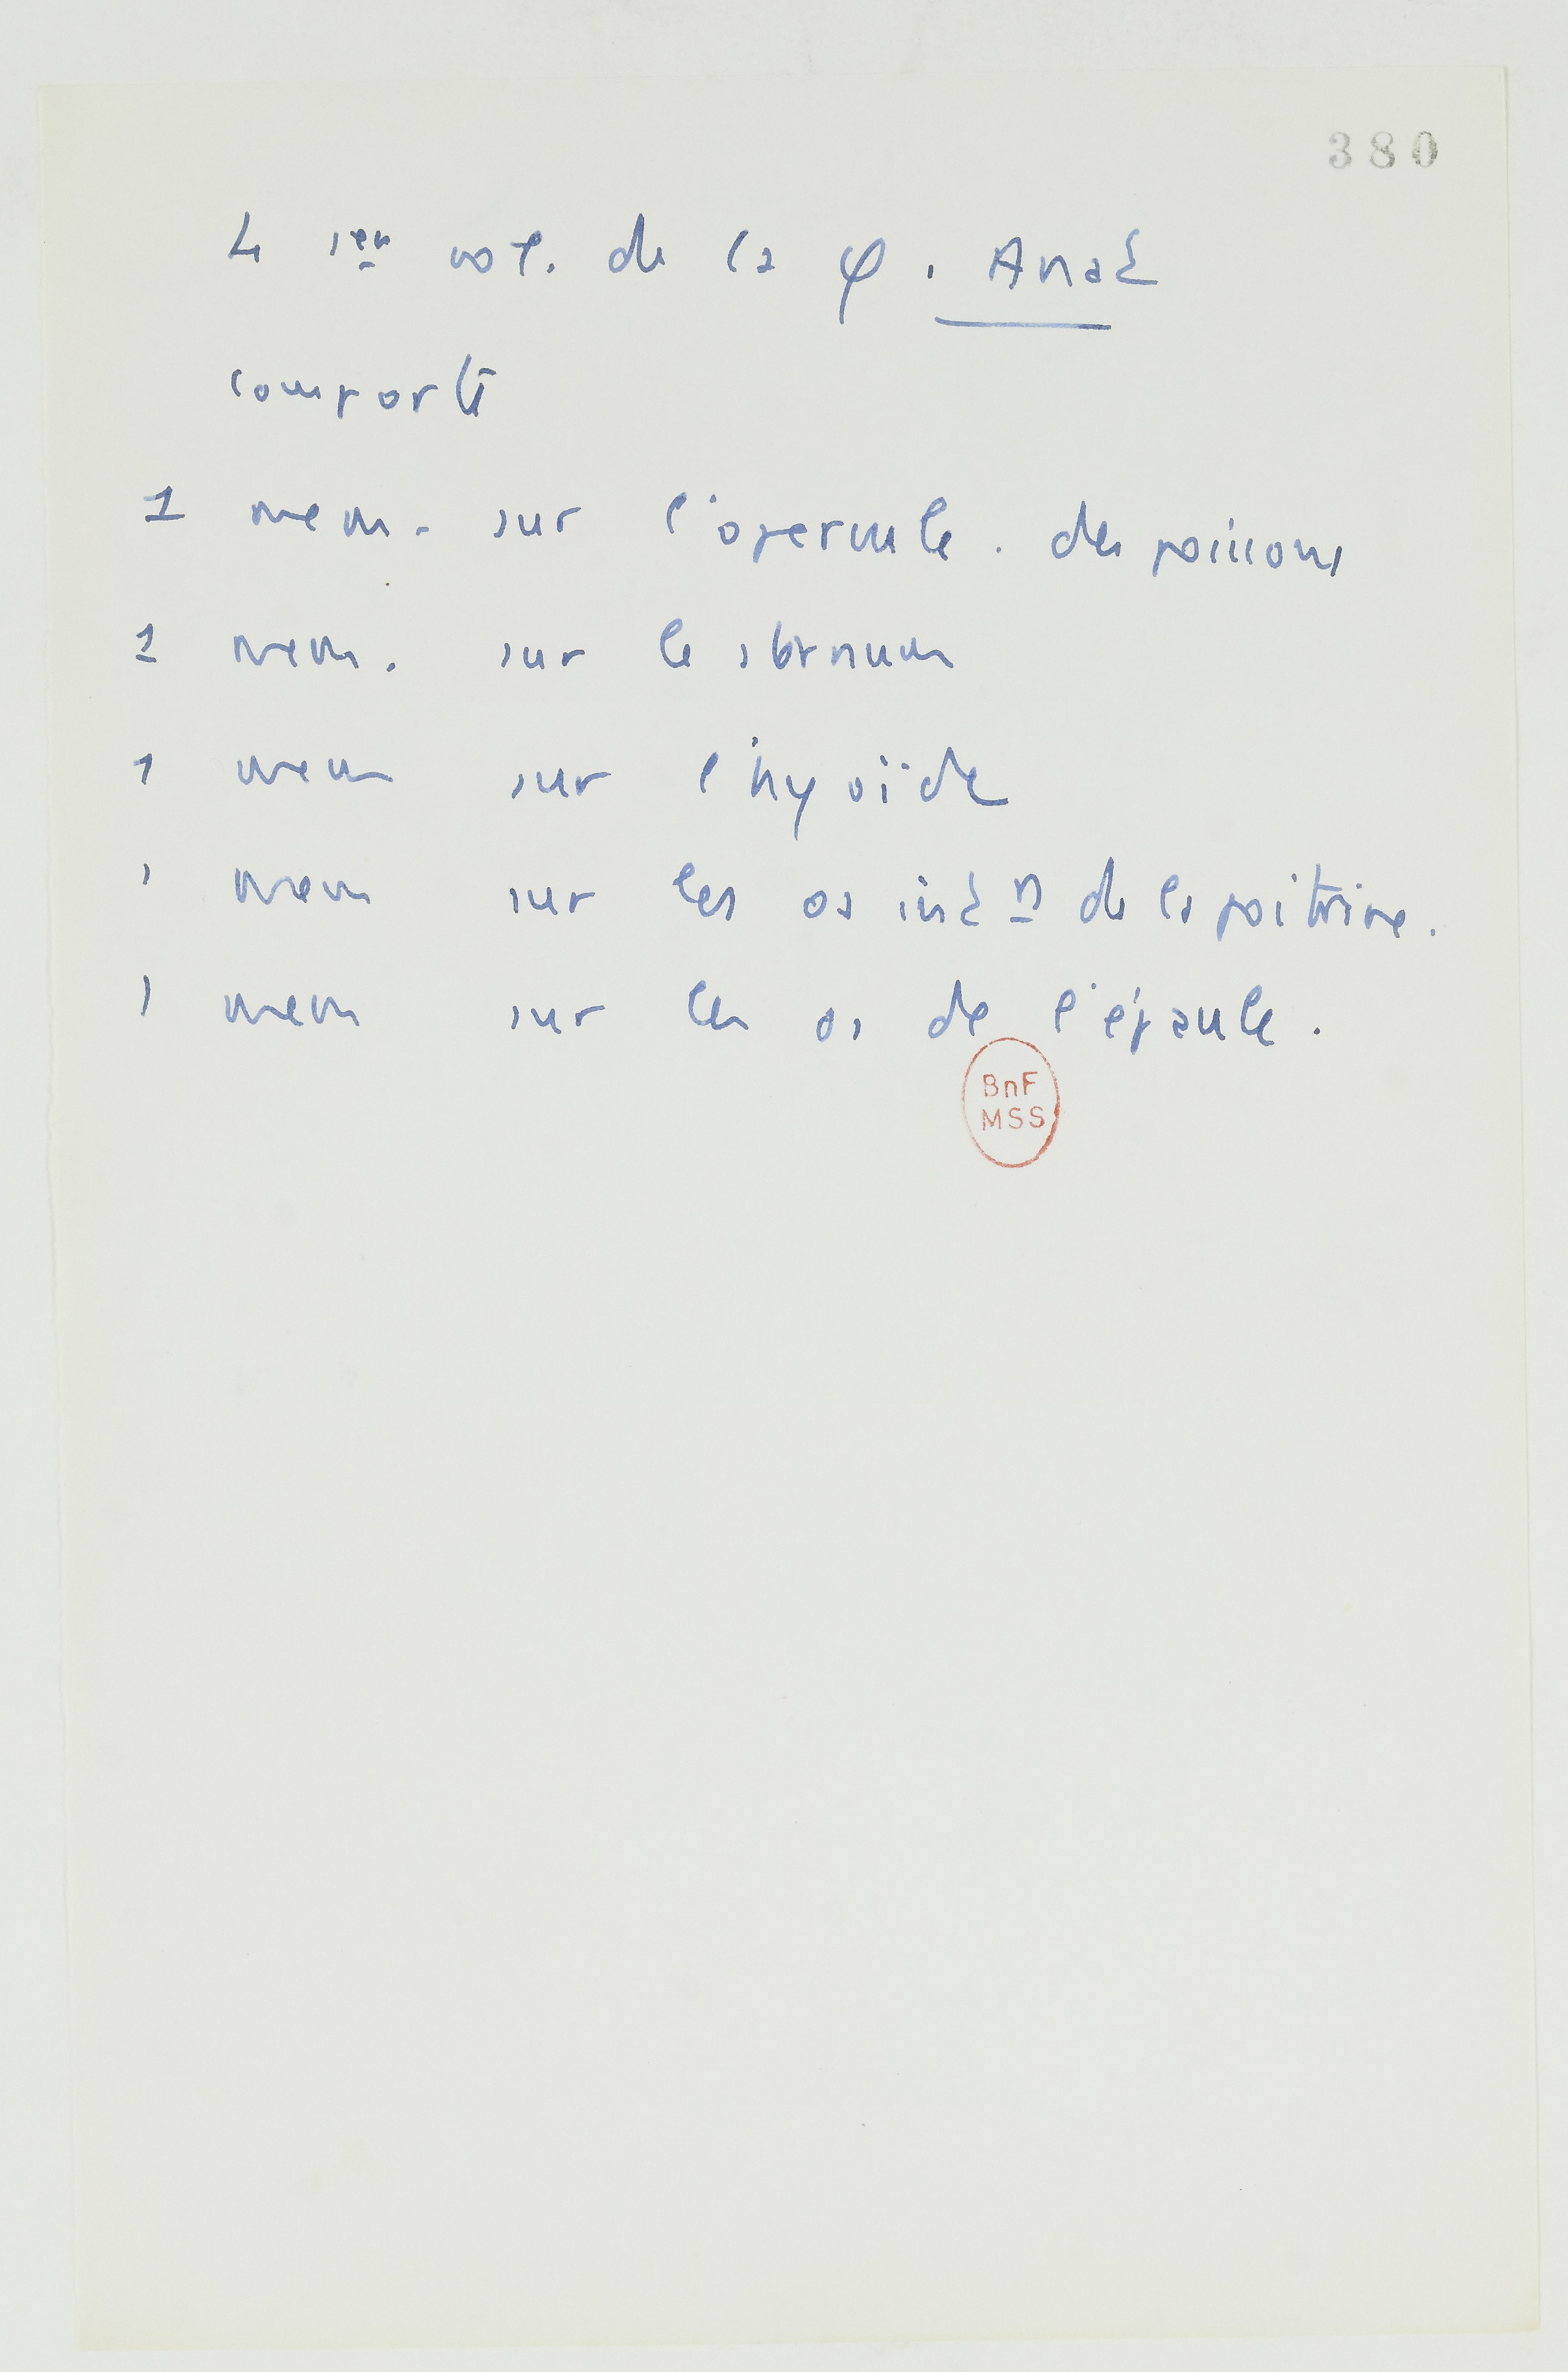 380
Le 1er vol. de la φ. Anat
comporte
1 mem. sur l'opercule. des poissons
1 mem. sur le sternum
1 mem sur l'hyoïde
1 mem sur les os intn de la poitrine.
1 mem sur les os de l'épaule.
BnF
MSS